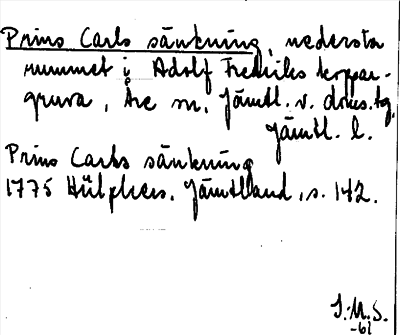 Prins Carls sänkning, nedersta
rummet i Adolf Fredriks koppar-
gruva, Åre sn, Jämtl. v. doms.tg,
Jämtl. l.
Prins Carls sänkning
1775 Hülphers. Jämtland, s. 142.
S.M.S.
-61